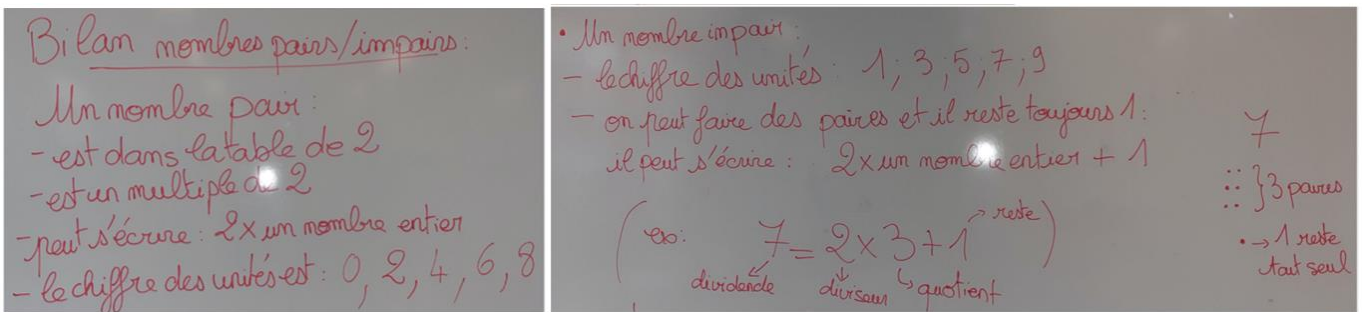 Bilan nombres pairs/impairs:
Un nombre pair:
- est dans la table de 2
- est un multiple de 2
- peut s'écrire: 2x un nombre entier
- le chiffre des unités est: 0, 2, 4, 6, 8
• Un nombre impair:
- le chiffre des unités: 1; 3; 5; 7; 9
- on peut faire des paires et il reste toujours 1:
il peut s'écrire: 2x un nombre entier + 1
(ex: 7 = 2 x 3 + 1 → reste)
dividende diviseur quotient
7
} 3 paires
• → 1 reste
tout seul